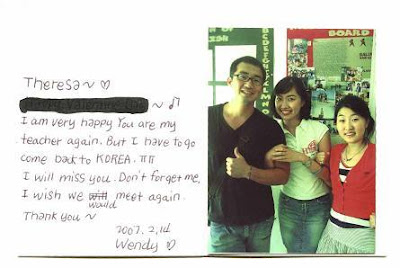 Theresa~ ♡
Valentine ~ ♫
I am very happy You are my
teacher again. But I have to go
come back to KOREA. ㅠㅠ
I will miss you. Don't forget me.
I wish we will would meet again.
Thank you ~
2007. 2. 14
Wendy ♡
BOARD